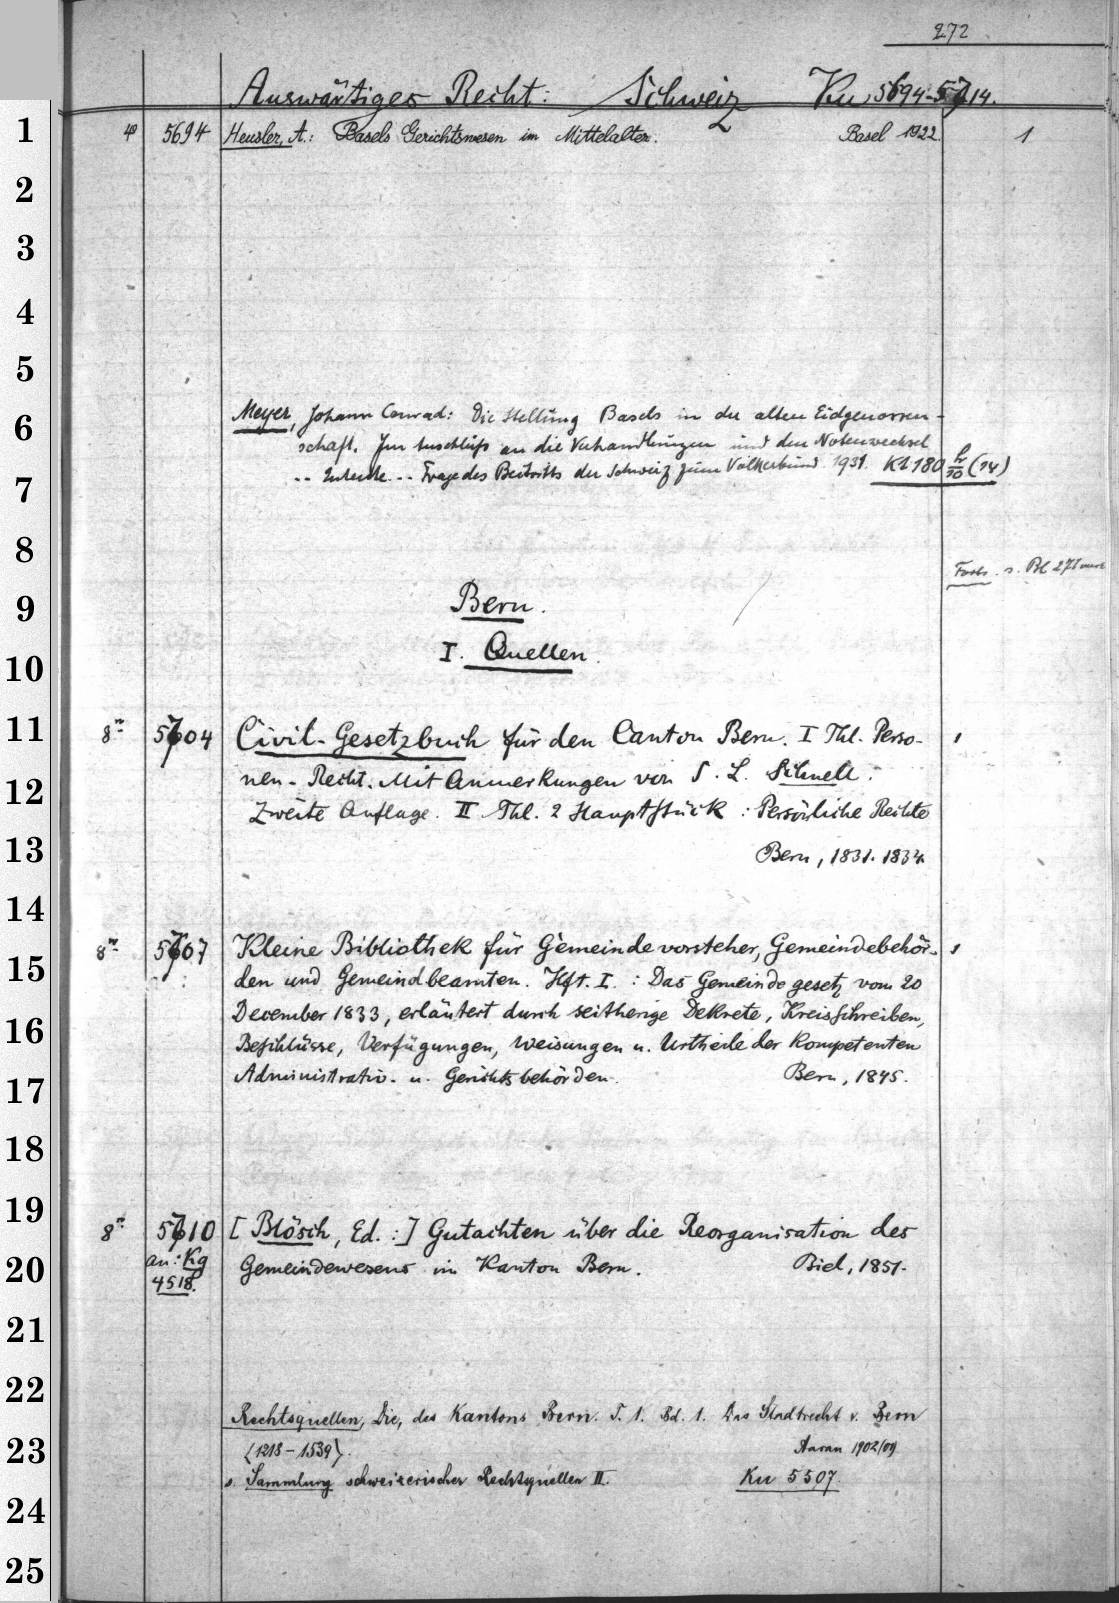 272
Auswärtiges Recht: Schweiz Ku 5694-5714.
1 4° 5694 Heusler, A.: Basels Gerichtswesen im Mittelalter. Basel 1922. 1
2
3
4
5
6 Meyer, Johann Conrad: Die Stellung Basels in der alten Eidgenossen-
schaft. Im Anschluß an die Verhandlungen und den Notenwechsel
7 .. Entente... Frage des Beitritts der Schweiz zum Völkerbund. 1931. (14)
8
Forts. s. Bl 271
9 Bern.
10 I. Quellen.
11 8° 5704 Civil-Gesetzbuch für den Canton Bern. I Thl. Perso- 1
nen-Recht. Mit Anmerkungen von S. L. Schnell.
12 Zweite Auflage. II Thl. 2 Hauptstück: Persönliche Rechte
13 Bern, 1831. 1834.
14
8° 5707 Kleine Bibliothek für Gemeindevorsteher, Gemeindebehör- 1
15 den und Gemeindbeamten. Hft. I.: Das Gemeindegesetz vom 20
December 1833, erläutert durch seitherige Dekrete, Kreisschreiben,
16 Beschlüsse, Verfügungen, Weisungen u. Urtheile der kompetenten
17 Administrativ- u. Gerichtsbehörden. Bern, 1845.
18
19 8° 5710 [Blösch, Ed.:] Gutachten über die Reorganisation des
20 an: Kg Gemeindewesens im Kanton Bern. Biel, 1851.
4518.
21
22 Rechtsquellen, Die, des Kantons Bern. T. 1. Bd. 1. Das Stadtrecht v. Bern
23 (1218-1539). Aarau 1902/09
s. Sammlung schweizerischer Rechtsquellen II. Ku 5507.
24
25